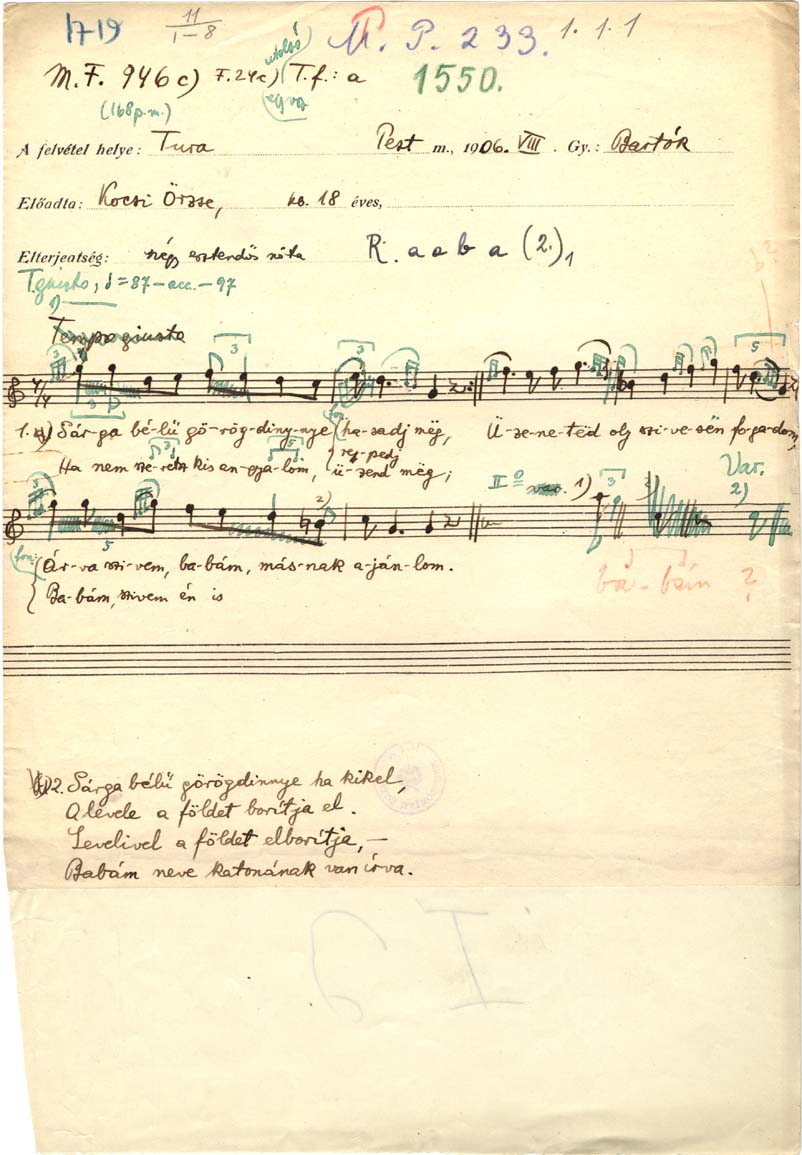 17-19 11/1-8 M. P. 233. 1. 1. 1
M.F. 946c) F.24c) utolsó T.f.: a 1550.
(168 p.m.) egy vsz
A felvétel helye: Tura Pest m., 1906. VIII. Gy.: Bartók
Előadta: Kocsi Örzse, kb. 18 éves,
Elterjeatség: négy esztendős nóta R. a a b a (2.)1
T. giusto, ♩=87-acc.-97 b?
1)
Tempo giusto
3 3 3 5
3
1. Sár-ga bé-lű gö-rög-diny-nye ha-sadj mëg, Ü-ze-ne-tëd oly szi-ve-sën fo-ga-dom,
rep-pedj
Ha nem sze-retsz kis an-gya-lom, ü-zend mëg;
3 II° var. 1) 3 Var.
2) 2)
5
Ár-va szi-vem, ba-bám, más-nak a-ján-lom.
Ba-bám, szivem én is
ba-bám ?
2. Sárga bélű görögdinnye ha kikel,
A levele a földet borítja el.
Levelivel a földet elborítja,—
Babám neve katonának van írva.